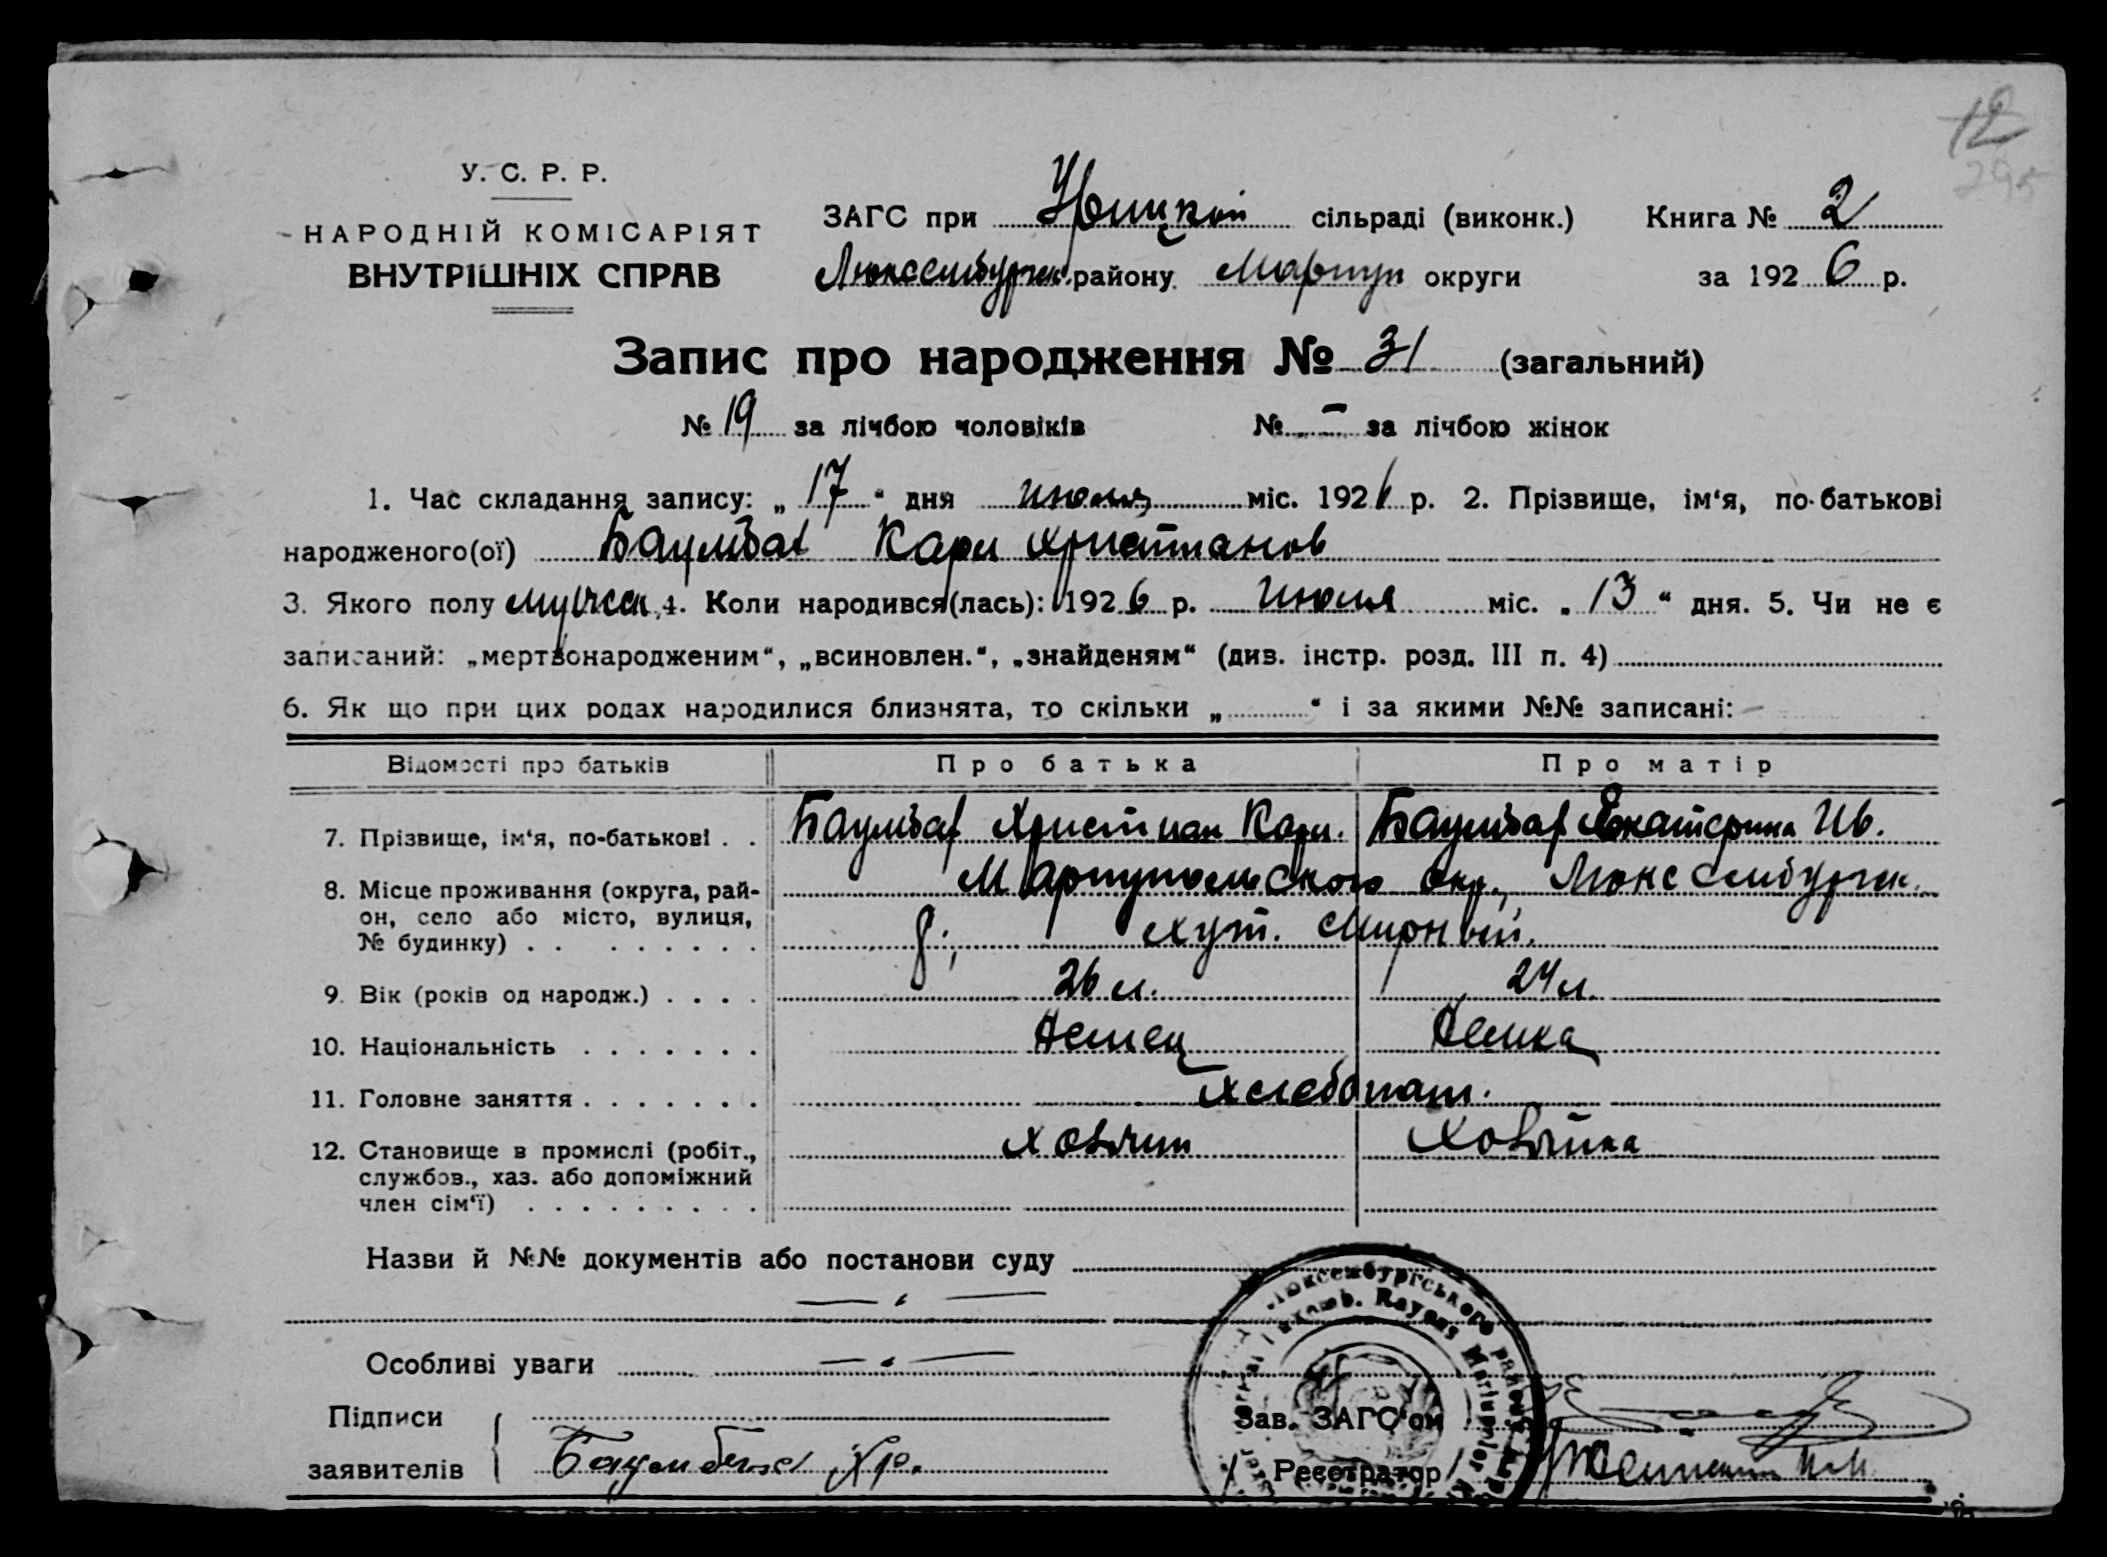 12
295
У. С. Р. Р.
НАРОДНІЙ КОМІСАРІЯТ
ВНУТРІШНІХ СПРАВ
ЗАГС при сільраді (виконк.) Книга № 2
Люксембургск. району Мариуп округи за 1926 р.
Запис про народження № 31 (загальний)
№ 19 за лічбою чоловіків № – за лічбою жінок
1. Час складання запису: „ 17 “ дня июля міс. 1926 р. 2. Прізвище, ім‘я, по-батькові
народженого(ої) Баумбах Карл Христианов
3. Якого полу мужеск 4. Коли народився(лась): 1926 р. июля міс. „ 13 “ дня. 5. Чи не є
записаний: „мертвонародженим“, „всиновлен.“, „знайденям“ (див. інстр. розд. III п. 4)
6. Як що при цих родах народилися близнята, то скільки „ “ і за якими №№ записані: –
Відомості про батьків Про батька Про матір
7. Прізвище, ім‘я, по-батькові . . Баумбах Христиан Карл. Баумбах Екатерина Ив.
8. Місце проживання (округа, рай- Мариупольского окр., Люксембургск.
он, село або місто, вулиця,
№ будинку) . . р., хут. Мирный.
9. Вік (років од народж.) . . . . 26 л. 24 л.
10. Національність . . . . . . . Немец Немка
11. Головне заняття . . . . . . . Хлебопаш.
12. Становище в промислі (робіт., Хозяин Хозяйка
службов., хаз. або допоміжний
член сім‘ї) . . . . . . . . .
Назви й №№ документів або постанови суду
— „ —
Особливі уваги — „ —
Люксембургського району
Luxemb. Rayons Mariupoler
Підписи Зав. ЗАГС‘ом
заявителів Баумбах Хр. Реєстратор